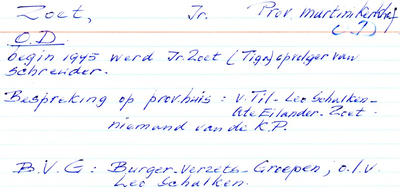 Zoet, Jr. Prov. martinikerkhof
(-?)
O.D.
begin 1945 werd Jr. Zoet (Tigo) opvolger van
Schreuder.
Bespreking op prov.huis: v. Til - Leo Schalken -
Ate Eilander. Zoet.
niemand van de K.P.
B.V.G: Burger-Verzets-Groepen; o.l.v.
Leo Schalken.